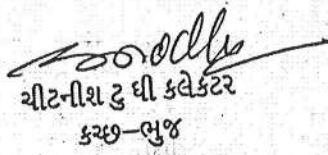 ચીટનીશ ટુ ધી કલેકટર
કચ્છ-ભુજ